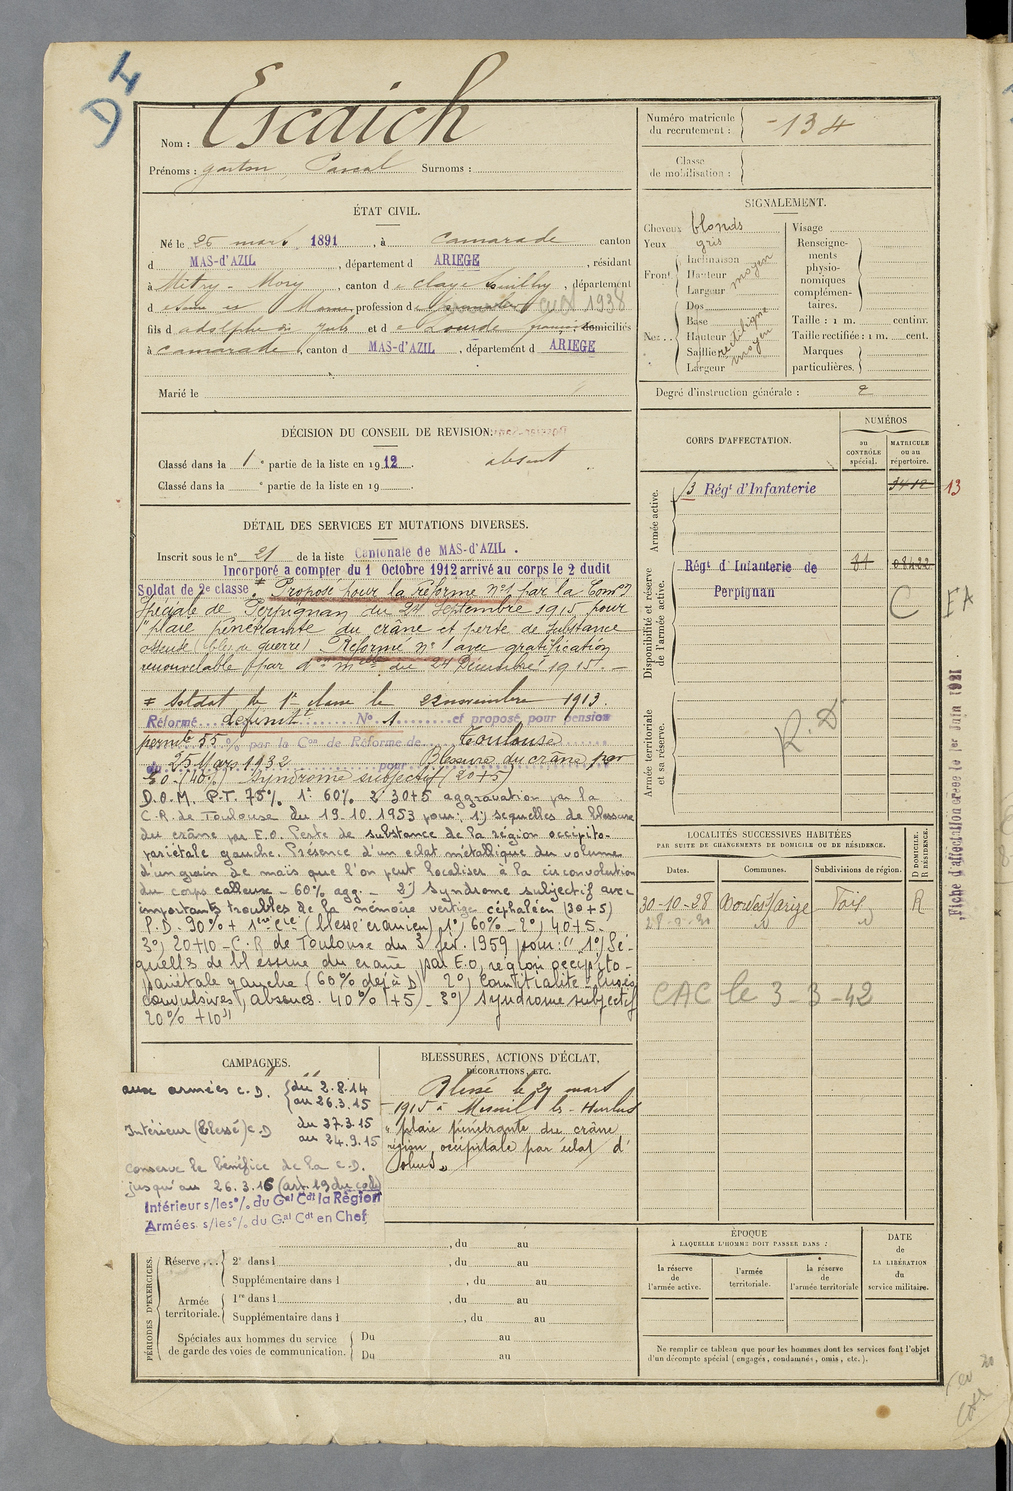 D 4
Nom : Escaich
Prénoms : gaston, Pascal Surnoms :
Numéro matricule du recrutement : 134
Classe de mobilisation :
ÉTAT CIVIL.
Né le 26 mars 1891, à Camarade canton
d MAS-d'AZIL, département d ARIEGE, résidant
à Mitry-Mory, canton d e Claye Souilly, département
d e Seine et Marne, profession de cult 1938
fils d adolphe et d e Lourde domiciliés
à Camarade, canton d MAS-d'AZIL, département d ARIEGE
Marié le
SIGNALEMENT.
Cheveux blonds
Yeux gris
Front Inclinaison
Hauteur moyen
Largeur
Nez Dos
Base
Hauteur rectiligne
Saillie moyen
Largeur
Visage
Renseignements physionomiques complémentaires.
Taille : 1 m. centim.
Taille rectifiée : 1 m. cent.
Marques particulières.
Degré d'instruction générale : 2
DÉCISION DU CONSEIL DE REVISION:
Classé dans la 1e partie de la liste en 1912. absent
Classé dans la e partie de la liste en 19
DÉTAIL DES SERVICES ET MUTATIONS DIVERSES.
Inscrit sous le n° 21 de la liste Cantonale de MAS-d'AZIL.
Incorporé a compter du 1 Octobre 1912 arrivé au corps le 2 dudit
Soldat de 2e classe * Proposé pour la réforme n°1 par la Comon
Spéciale de Perpignan du 24 Septembre 1915 pour
"plaie pénétrante du crâne et perte de substance
osseuse (bles. de guerre). Réformé n° 1 avec gratification
renouvelable par don mlle du 24 Décembre 1915. -
* Soldat de 1e classe le 22 novembre 1913.
Réformé définitt N° 1 et proposé pour pension
permte 55 % par la Con de Réforme de Toulouse
du 25 Mars 1932 pour Blessure du crâne par
E.O. (40%) Syndrome subjectif (20+5)
D.O.M. P.T. 75% 1° 60% 2° 30+5 aggravation par la
C.R. de Toulouse du 19.10.1953 pour: 1°) sequelles de blessure
du crâne par E.O. Perte de substance de la région occipito-
pariétale gauche. Présence d'un eclat métallique du volume
d'un grain de mais que l'on peut localiser à la circonvolution
du corps calleux - 60% agg. - 2°) Syndrome subjectif avec
importants troubles de la mémoire vertiges céphalées (30+5)
P.D. 90% + (blessé cranien) 1°) 60% - 2°) 40+5 -
3°) 20+10 - C.R de Toulouse du 3 fev. 1959 pour: "1°) Sé-
quelles de blessure du crane par E.O. région occipito-
pariétale gauche (60% déjà D) 2°) Comitialité crises
convulsives, absences. 40% (+5) - 3°) Syndrome subjectif
20% +10"
CORPS D'AFFECTATION.
NUMÉROS
au CONTRÔLE spécial.
MATRICULE ou au répertoire.
Armée active.
Régt d'Infanterie 3412 13
Disponibilité et réserve de l'armée active.
Régt d'Infanterie de
Perpignan
C EA
Armée territoriale et sa réserve.
R.D.
Fiche d'affectation créée le 1er Juin 1921
LOCALITÉS SUCCESSIVES HABITÉES
PAR SUITE DE CHANGEMENTS DE DOMICILE OU DE RÉSIDENCE.
Dates. Communes. Subdivisions de région. D DOMICILE. R RÉSIDENCE.
30-10-28 Bordes s/Arize Foix R
CAC le 3-3-42
CAMPAGNES.
aux armées c.D. du 2.8.14
au 26.3.15
Intérieur (blessé) c.D du 27.3.15
au 24.9.15
conserve le bénéfice de la c.D.
jusqu'au 26.3.16 (art. 19 du code)
Intérieur s/les °/. du Gal Cdt la Région
Armées s/les °/. du Gal Cdt en Chef
BLESSURES, ACTIONS D'ÉCLAT,
DÉCORATIONS, ETC.
Blessé le 27 mars
1915 à Mesnil les-Hurlus
"plaie pénétrante du crâne
région occipitale par éclat d'
obus"
PÉRIODES D'EXERCICES.
, du au
Réserve 2e dans l , du au
Supplémentaire dans l , du au
Armée territoriale. 1re dans l , du au
Supplémentaire dans l , du au
Spéciales aux hommes du service Du au
de garde des voies de communication. Du au
ÉPOQUE
À LAQUELLE L'HOMME DOIT PASSER DANS :
la réserve de l'armée active.
l'armée territoriale.
la réserve de l'armée territoriale
DATE de LA LIBÉRATION du service militaire.
Ne remplir ce tableau que pour les hommes dont les services font l'objet
d'un décompte spécial (engagés, condamnés, omis, etc.).